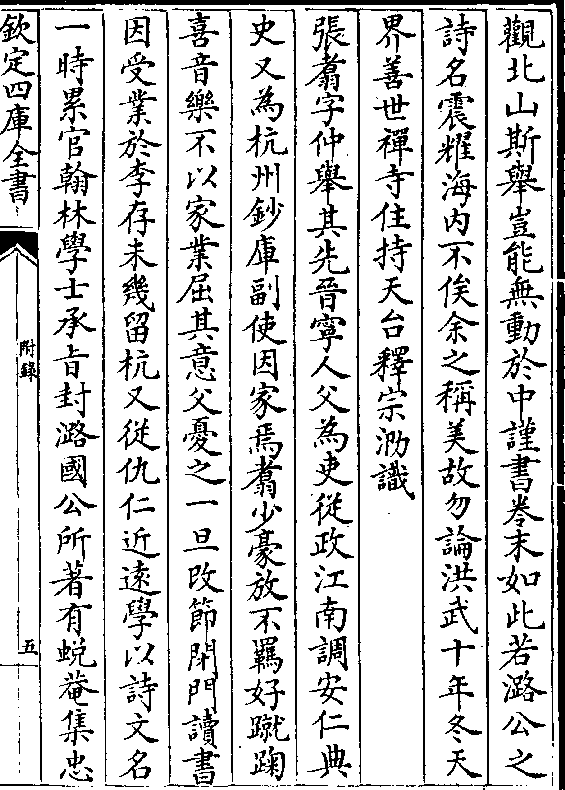 觀北山斯舉豈能無動於中謹書卷末如此若潞公之
詩名震耀海内不俟余之稱美故勿論洪武十年冬天
界善世禪寺住持天台釋宗泐識
張翥字仲舉其先晉寧人父為吏從政江南調安仁典
史又為杭州鈔庫副使因家焉翥少豪放不羈好蹴踘
喜音樂不以家業屈其意父憂之一旦改節閉門讀書
因受業於李存未幾留杭又從仇仁近逺學以詩文名
一時累官翰林學士承旨封潞國公所著有蛻菴集忠
欽定四庫全書
附錄
五